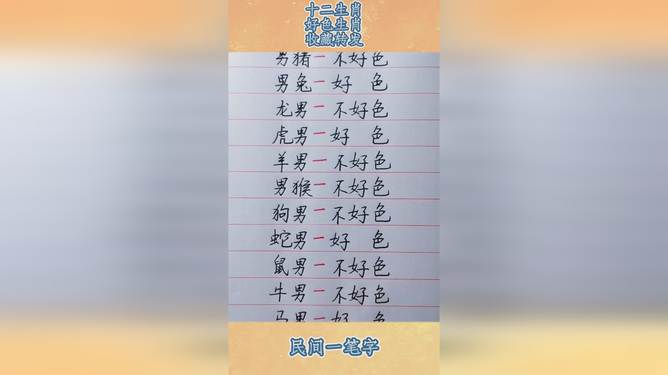 十二生肖
好色生肖
收藏转发
男猪一不好色
男兔一好 色
龙男一不好色
虎男一好 色
羊男一不好色
男猴一不好色
狗男一不好色
蛇男一好 色
鼠男一不好色
牛男一不好色
马男一好 色
民间一笔字